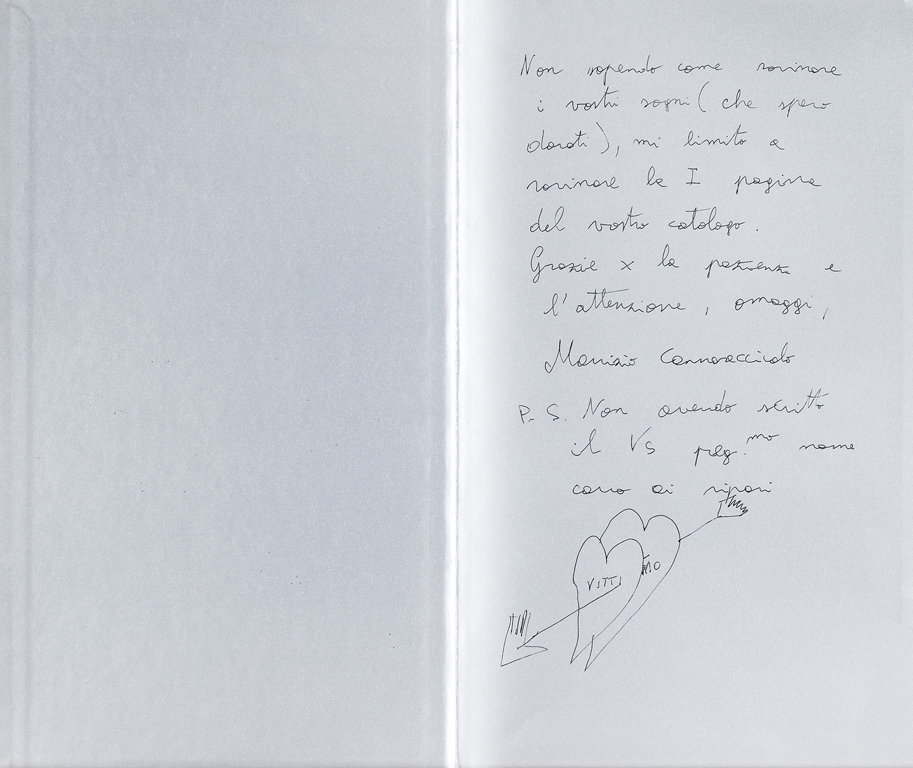 Non sapendo come rovinare
i vostri sogni ( che spero
dorati ), mi limito a
rovinare la I pagina
del vostro catalogo.
Grazie x la pazienza e
l'attenzione, omaggi,
Maurizio Cannavacciuolo
P.S. Non avendo scritto
il Vs preg.mo nome
corro ai ripari
VITTI MO